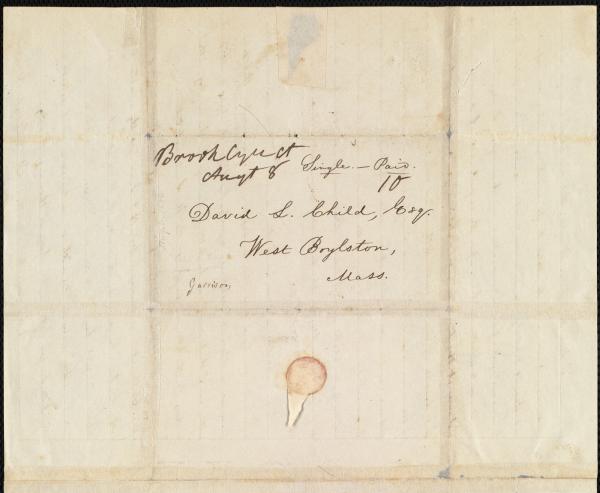 Brooklyn Ct
Augt 8
Single. — Paid.
10
David L. Child, Esq.
West Boylston,
Mass.
Garrison,